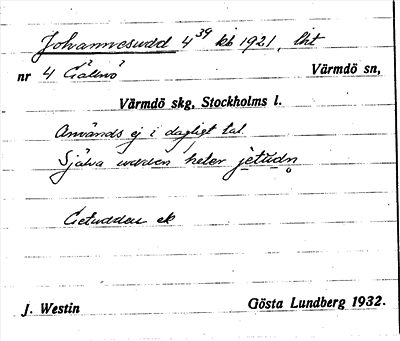 Johannesudd 4³⁹ kb 1921, lht
nr 4 Gåsvö Värmdö sn,
Värmdö skg, Stockholms l.
Används ej i dagligt tal.
Själva udden heter jetùdn
Getudden ek
J. Westin Gösta Lundberg 1932.